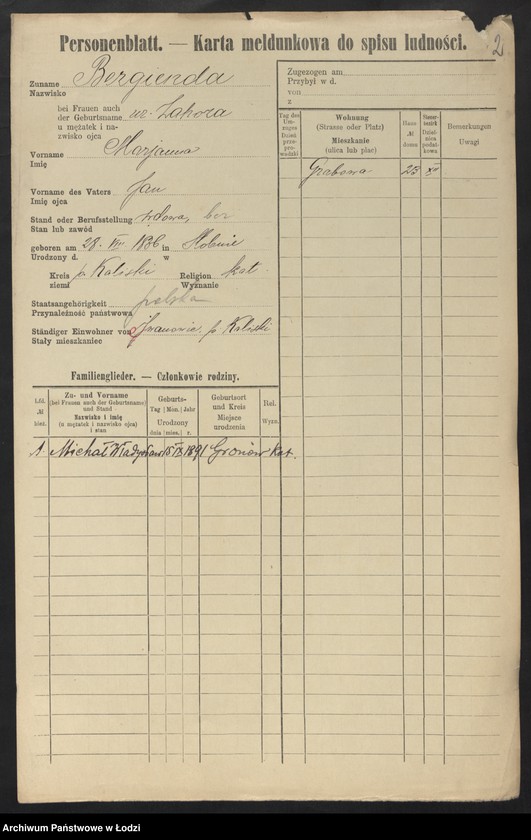 Personenblatt. — Karta meldunkowa do spisu ludności.
2
Zuname Bergienda
Nazwisko
bei Frauen auch
der Geburtsname ur. Zahora
u mężatek i na-
zwisko ojca
Vorname Marjanna
Imię
Vorname des Vaters Jan
Imię ojca
Stand oder Berufsstellung wdowa, bez
Stan lub zawód
geboren am 28. VIII 1886 in Słobnie
Urodzony d. w
Kreis p. Kaliski Religion kat.
ziemi Wyznanie
Staatsangehörigkeit polska
Przynależność państwowa
Ständiger Einwohner von Iwanowic. p. Kaliski
Stały mieszkaniec
Zugezogen am
Przybył w d.
von
z
Tag des Um-zuges Dzień prze-pro-wadzki
Wohnung (Strasse oder Platz) Mieszkanie (ulica lub plac)
Haus № domu
Steuer-bezirk Dziel-nica podat-kowa
Bemerkungen Uwagi
Grabowa 23 XI
Familienglieder. — Członkowie rodziny.
Lfd. № bież.
Zu- und Vorname (bei Frauen auch der Geburtsname) und Stand Nazwisko i imię (u mężatek i nazwisko ojca) i stan
Geburts- Tag Mon. Jahr Urodzony dnia mies. r.
Geburtsort und Kreis Miejsce urodzenia
Rel. Wyzn.
1. Michał Władysław 15 IX 1891 Gronów Kat.
Archiwum Państwowe w Łodzi